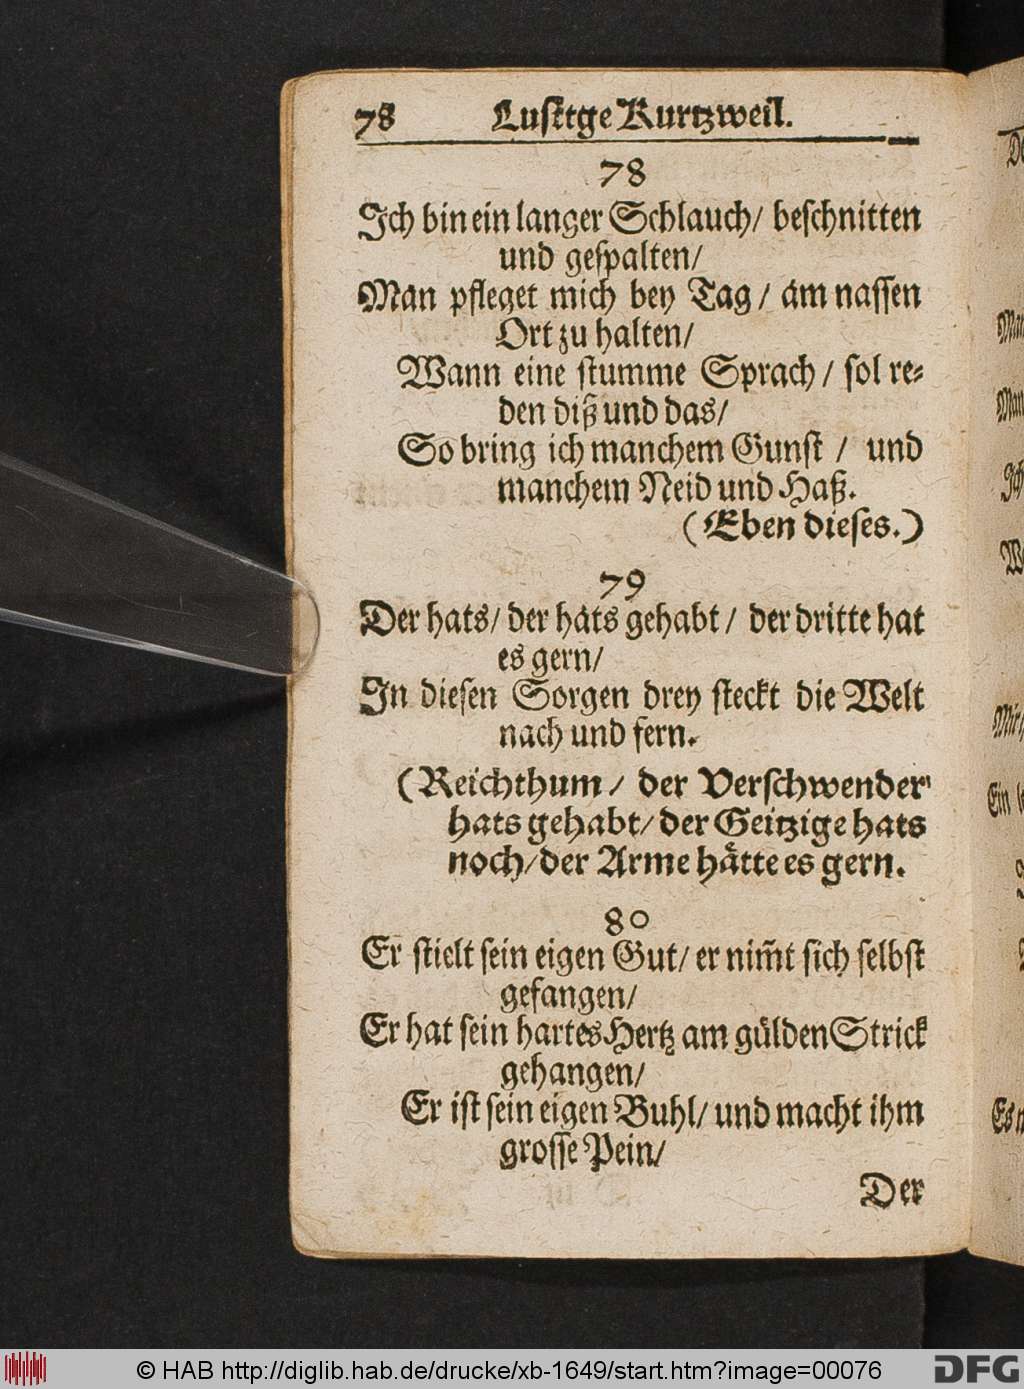 78 Lusttge Kurtzweil.
78
Ich bin ein langer Schlauch/ beschnitten
und gespalten/
Man pfleget mich bey Tag / am nassen
Ort zu halten/
Wann eine stumme Sprach / sol re-
den diß und das/
So bring ich manchem Gunst / und
manchem Neid und Haß.
(Eben dieses.)
79
Der hats/ der hats gehabt / der dritte hat
es gern/
In diesen Sorgen drey steckt die Welt
nach und fern.
(Reichthum / der Verschwender
hats gehabt/ der Geitzige hats
noch/ der Arme hätte es gern.
80
Er stielt sein eigen Gut/ er nim̃t sich selbst
gefangen/
Er hat sein hartes Hertz am gülden Strick
gehangen/
Er ist sein eigen Buhl/ und macht ihm
grosse Pein/
Der
© HAB http://diglib.hab.de/drucke/xb-1649/start.htm?image=00076
DFG